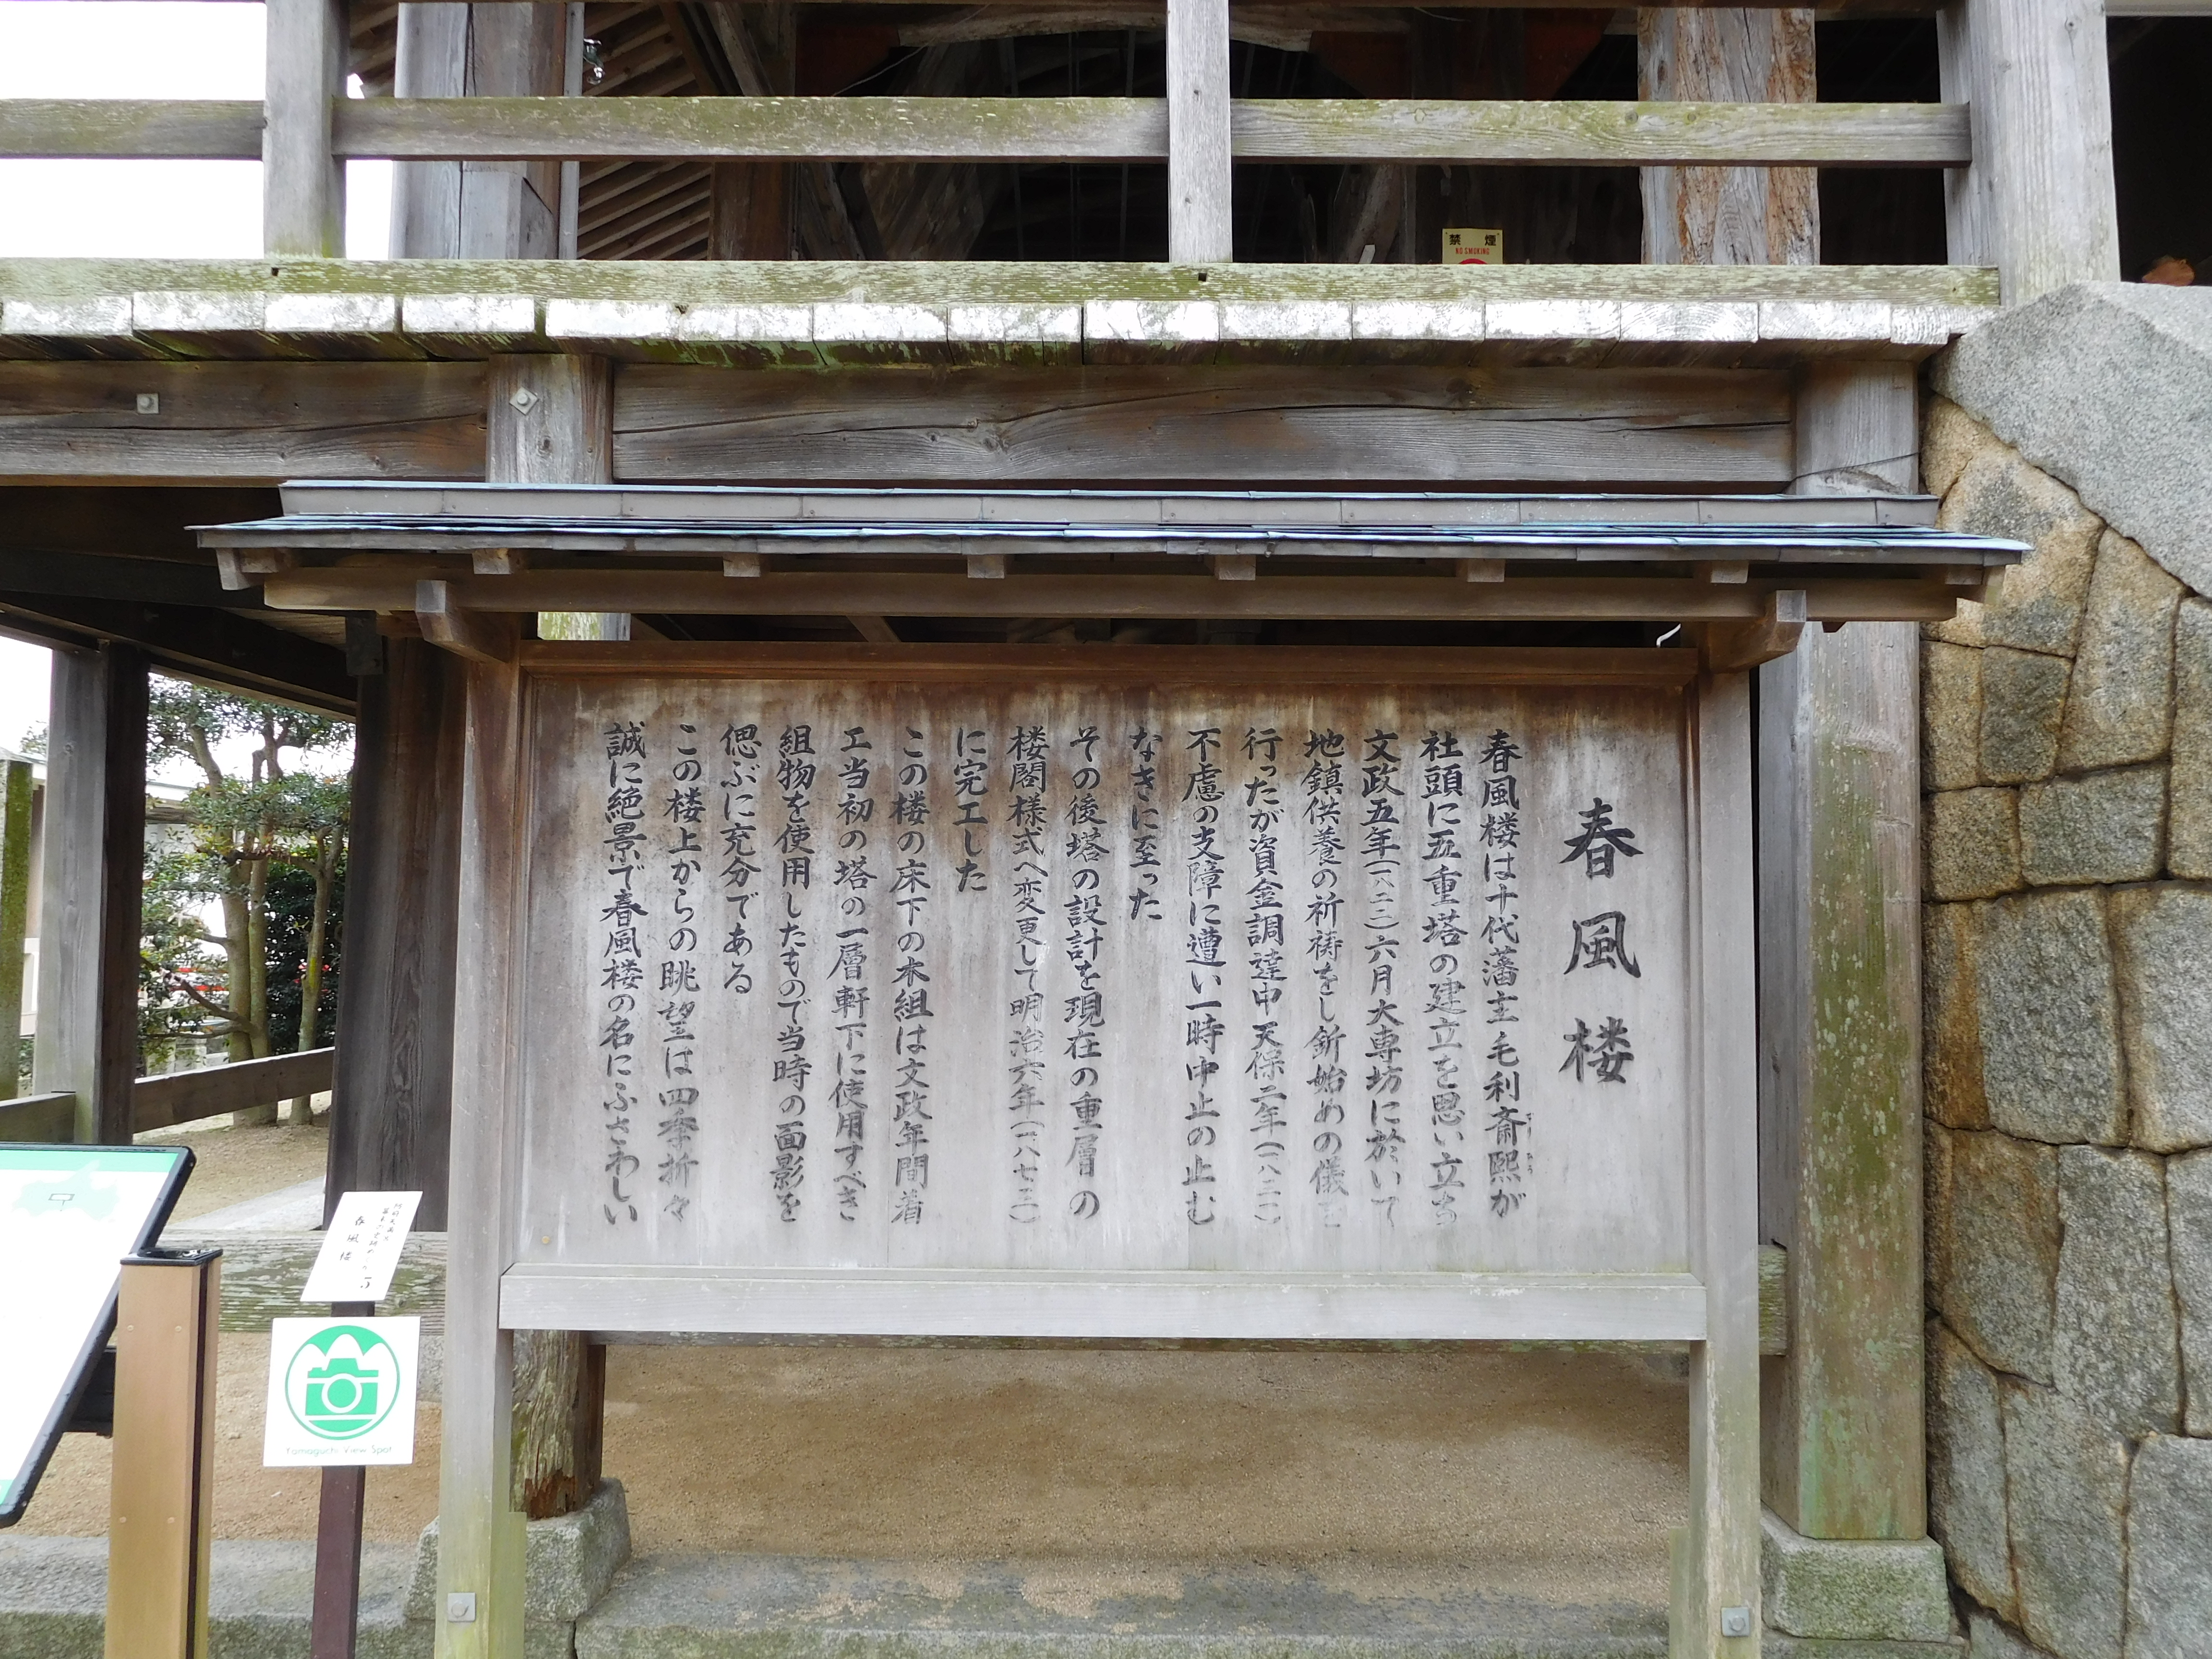 禁煙
NO SMOKING
春風楼
春風楼は十代藩主毛利斎熙が
社頭に五重塔の建立を思い立ち
文政五年(一八二二)六月大専坊に於いて
地鎮供養の祈祷をし釿始めの儀を
行ったが資金調達中天保二年(一八三一)
不慮の支障に遭い一時中止の止む
なきに至った
その後塔の設計を現在の重層の
楼閣様式へ変更して明治六年(一八七三)
に完工した
この楼の床下の木組は文政年間着
工当初の塔の一層軒下に使用すべき
組物を使用したもので当時の面影を
偲ぶに充分である
この楼上からの眺望は四季折々
誠に絶景で春風楼の名にふさわしい
春風楼
Yamaguchi View Spot